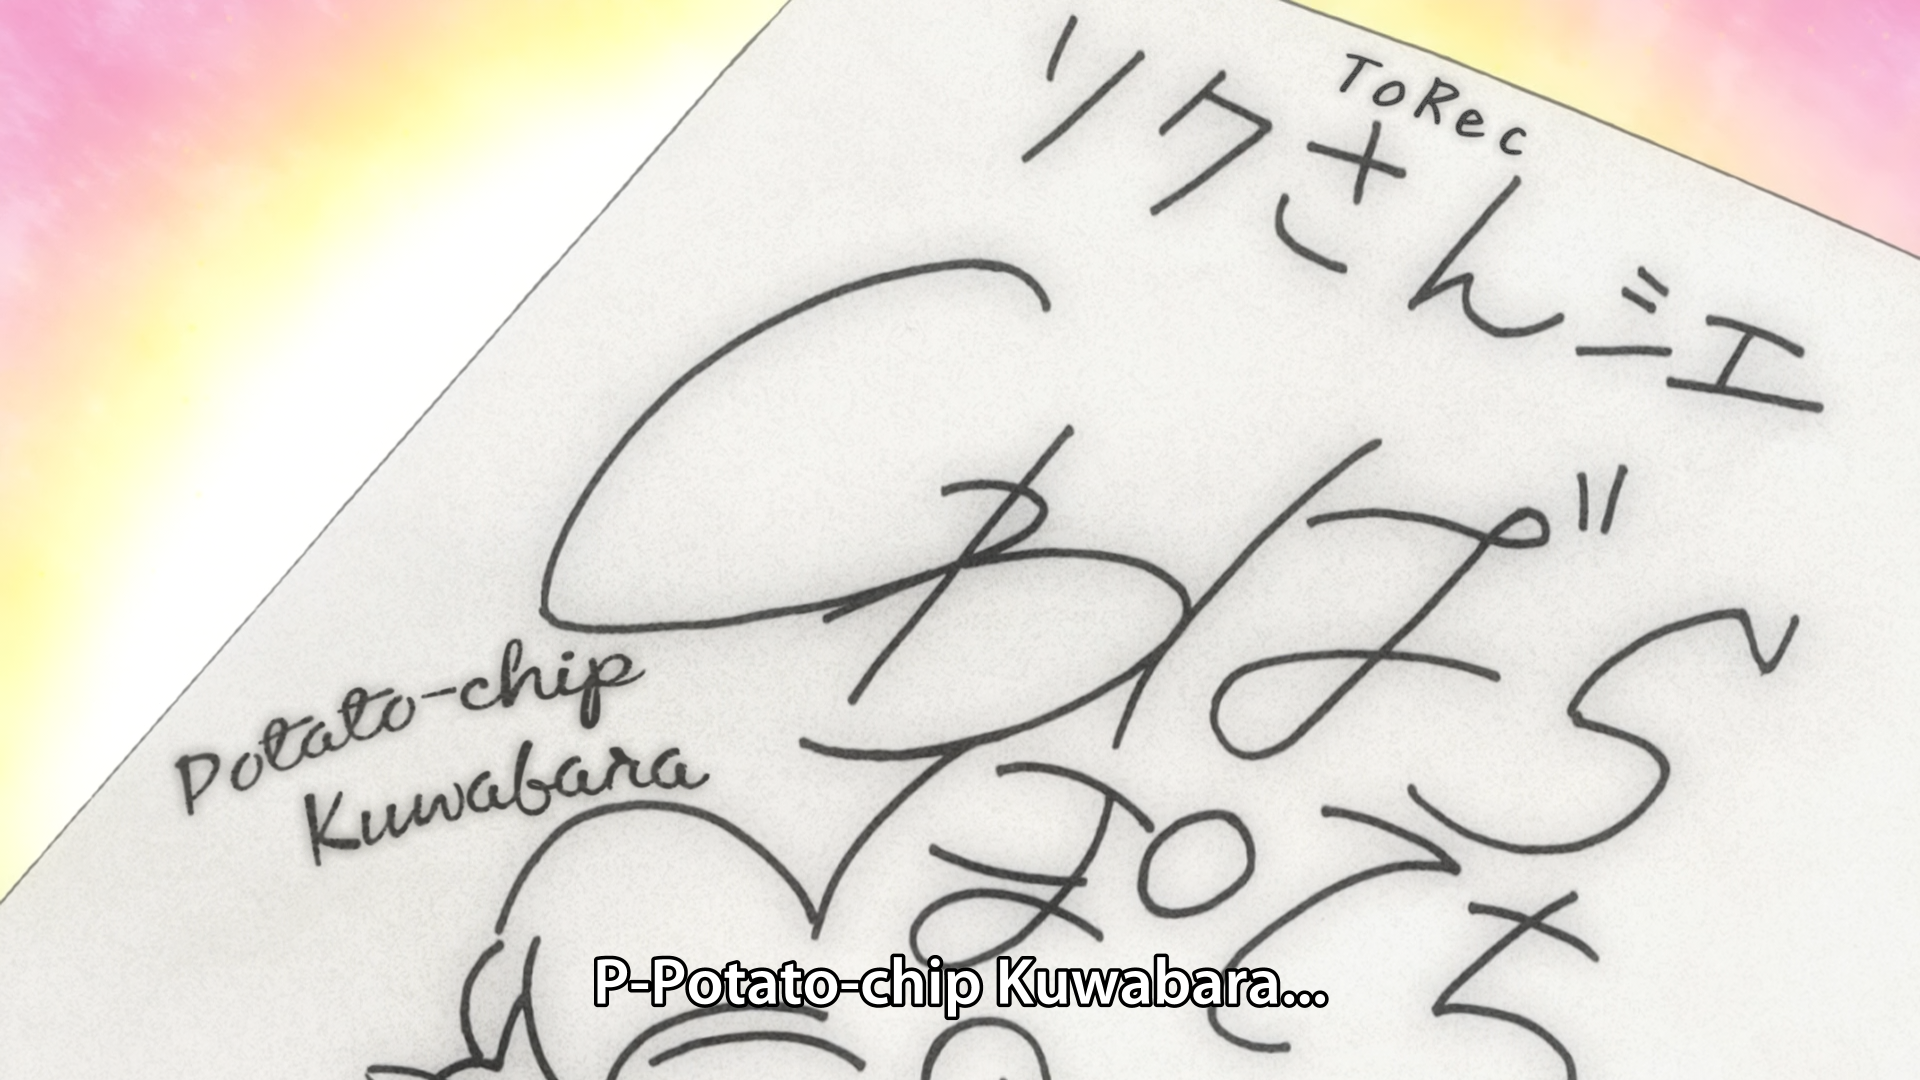 ToRec
リクさん江
くわばら
Potato-chip
Kuwabara
ぽてち
P-Potato-chip Kuwabara...